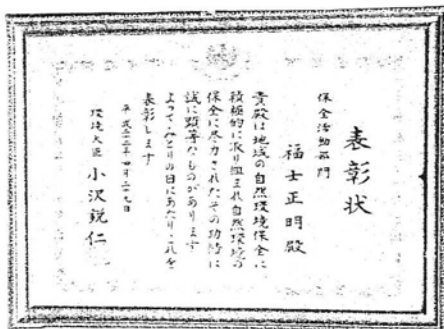 表彰状
保全活動部門
福士正明殿
貴殿は地域の自然環境保全に
積極的に取り組まれ自然環境の
保全に尽力されたその功績は
誠に顕著なものがあります
よって、みどりの日にあたり、これを
表彰します
平成二十二年四月二十九日
環境大臣 小沢鋭仁